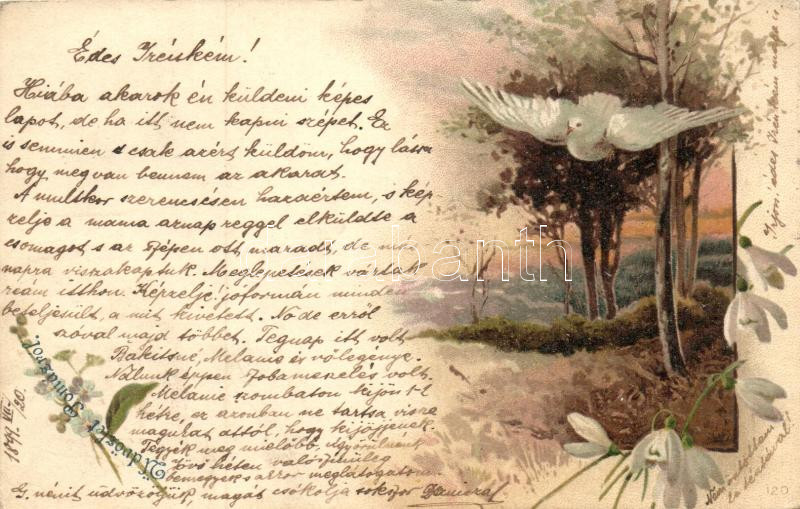 Édes Irénkém!
Hiába akarok én küldeni képes
lapot, de ha itt nem kapni szépet. Ez
is semmien s csak azért küldöm, hogy lássa
hogy megvan bennem az akarat.
A multkor szerencsésen hazaértem, s kép-
zelje a mama aznap reggel elküldte a
csomagot s az épen ott maradt, de
napra viszakaptuk. Meglepetések vártak
reám itthon. Képzelje! jóformán minden
beteljesült, a mit kivetett. No de erről
szóval majd többet. Tegnap itt volt
Melanie és völegénye.
Nálunk éppen volt.
Melanie szombaton kijön 1-2
hétre, ez azonban ne tartsa visza
magukat attól, hogy kijöjjenek.
Tegyék meg mielőbb.
Jövő héten valószinüleg
bemegyek s akkor meglátogatom.
G. nénit üdvözöljük, magát csókolja sokszor
Üdvözlet Pomázról.
1899. VII/20.
Irjon édes Irénkém
120
darabanth